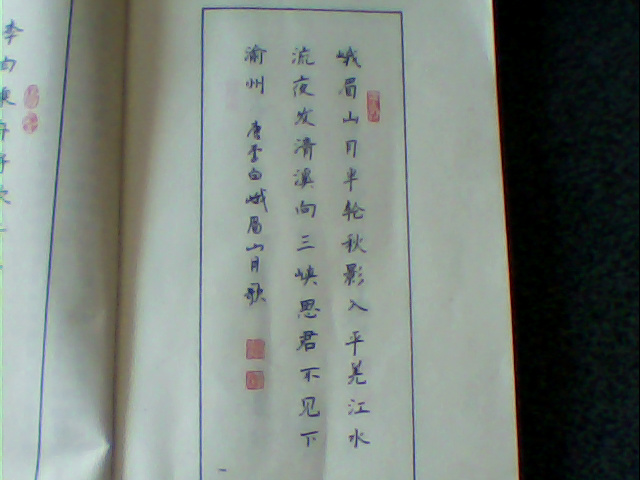 峨眉山月半轮秋影入平羌江水
流夜发清溪向三峡思君不见下
渝州 唐李白峨眉山月歌
李白